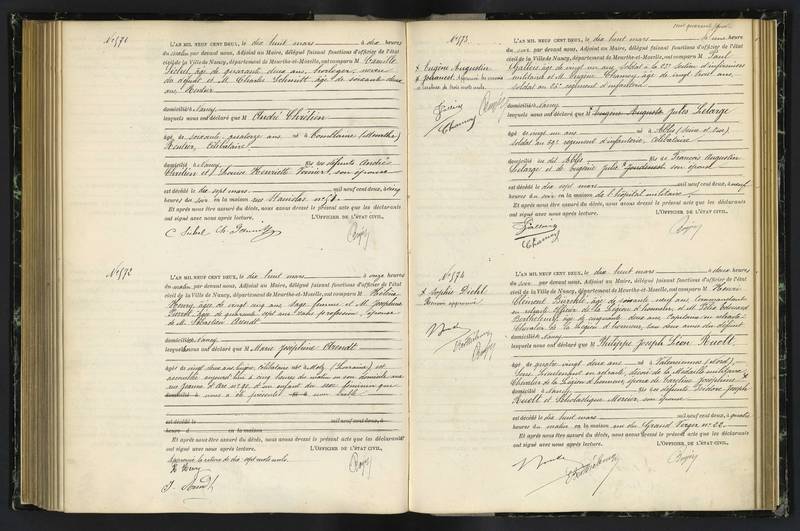 N° 571
L'AN MIL NEUF CENT DEUX, le dix huit mars à dix heures
du matin par devant nous, Adjoint au Maire, délégué faisant fonctions d'officier de l'état
civil de la Ville de Nancy, département de Meurthe-et-Moselle, ont comparu M Camille
âgé de quarante deux ans, horloger, neveu
du défunt et M. Charles Schmitt âgé de soixante deux
ans, Rentier
domiciliés à Nancy
lesquels nous ont déclaré que M André Chrétien
âgé de soixante quatorze ans né à (Meurthe)
Rentier, célibataire
domicilié à Nancy fils des défunts André
Chrétien et Louise Henriette son épouse
est décédé le dix sept mars mil neuf cent deux, à cinq
heures du soir en la maison rue Stanislas n°
Et après nous être assuré du décès, nous avons dressé le présent acte que les déclarants
ont signé avec nous après lecture. L'OFFICIER DE L'ÉTAT CIVIL,
N° 572
L'AN MIL NEUF CENT DEUX, le dix huit mars à onze heures
du matin par devant nous, Adjoint au Maire, délégué faisant fonctions d'officier de l'état
civil de la Ville de Nancy, département de Meurthe-et-Moselle, ont comparu M Hélène
Henry, âgée de vingt cinq ans Sage femme et M Joséphine
âgée de quarante sept ans sans profession, épouse
de M. Sébastien Arendt
domiciliés à Nancy
lesquels nous ont déclaré que M Marie Joséphine Arendt
âgée de vingt deux ans, lingère, célibataire née à Metz (Lorraine) est
accouchée aujourd'hui à cinq heures du matin en son domicile
rue Jeanne d'Arc n° d'un enfant du sexe féminin qui
nous a été présenté sans vie
est décédé le mil neuf cent deux, à
heures d en la maison
Et après nous être assuré du décès, nous avons dressé le présent acte que les déclarants
ont signé avec nous après lecture. L'OFFICIER DE L'ÉTAT CIVIL,
Approuvé la rature de dix sept mots nuls.
H. Henry
N° 573
L'AN MIL NEUF CENT DEUX, le dix huit mars à une heure
du soir par devant nous, Adjoint au Maire, délégué faisant fonctions d'officier de l'état
civil de la Ville de Nancy, département de Meurthe-et-Moselle, ont comparu M Paul
âgé de vingt un ans, soldat à la 23e section d'infirmiers
militaires et M. Eugène Charnoy âgé de vingt trois ans,
soldat au régiment d'infanterie
Eugène Augustin
domiciliés à Nancy
lesquels nous ont déclaré que M Eugène Auguste Jules Lelarge
âgé de vingt un ans né à Ablis (Seine et Oise)
soldat au 69e régiment d'infanterie, célibataire
domicilié au dit Ablis fils de François Augustin
Lelarge et de Eugénie Julie son épouse
est décédé le dix sept mars mil neuf cent deux, à
heures du soir en la maison de l'hôpital militaire
Et après nous être assuré du décès, nous avons dressé le présent acte que les déclarants
ont signé avec nous après lecture. L'OFFICIER DE L'ÉTAT CIVIL,
Charnoy
N° 574
L'AN MIL NEUF CENT DEUX, le dix huit mars à deux heures
du soir par devant nous, Adjoint au Maire, délégué faisant fonctions d'officier de l'état
civil de la Ville de Nancy, département de Meurthe-et-Moselle, ont comparu M Henri
Clément âgé de soixante neuf ans, Commandant
en retraite officier de la Légion d'honneur, et M. Félix Edouard
Barthélemy, âgé de cinquante deux ans, Capitaine en retraite
Chevalier de la Légion d'honneur, tous deux amis du défunt
Sophie Diehl
domiciliés à Nancy
lesquels nous ont déclaré que M Philippe Joseph Léon Ruolt
âgé de quatre vingt deux ans né à Valenciennes (Nord)
Sous Lieutenant en retraite, décoré de la Médaille militaire
Chevalier de la Légion d'honneur, époux de Caroline Joséphine
domicilié à Nancy fils des défunts Isidore Joseph
Ruolt et Scholastique Mercier, son épouse
est décédé le dix huit mars mil neuf cent deux, à quatre
heures du matin en la maison rue du Grand Verger n° 22
Et après nous être assuré du décès, nous avons dressé le présent acte que les déclarants
ont signé avec nous après lecture. L'OFFICIER DE L'ÉTAT CIVIL,